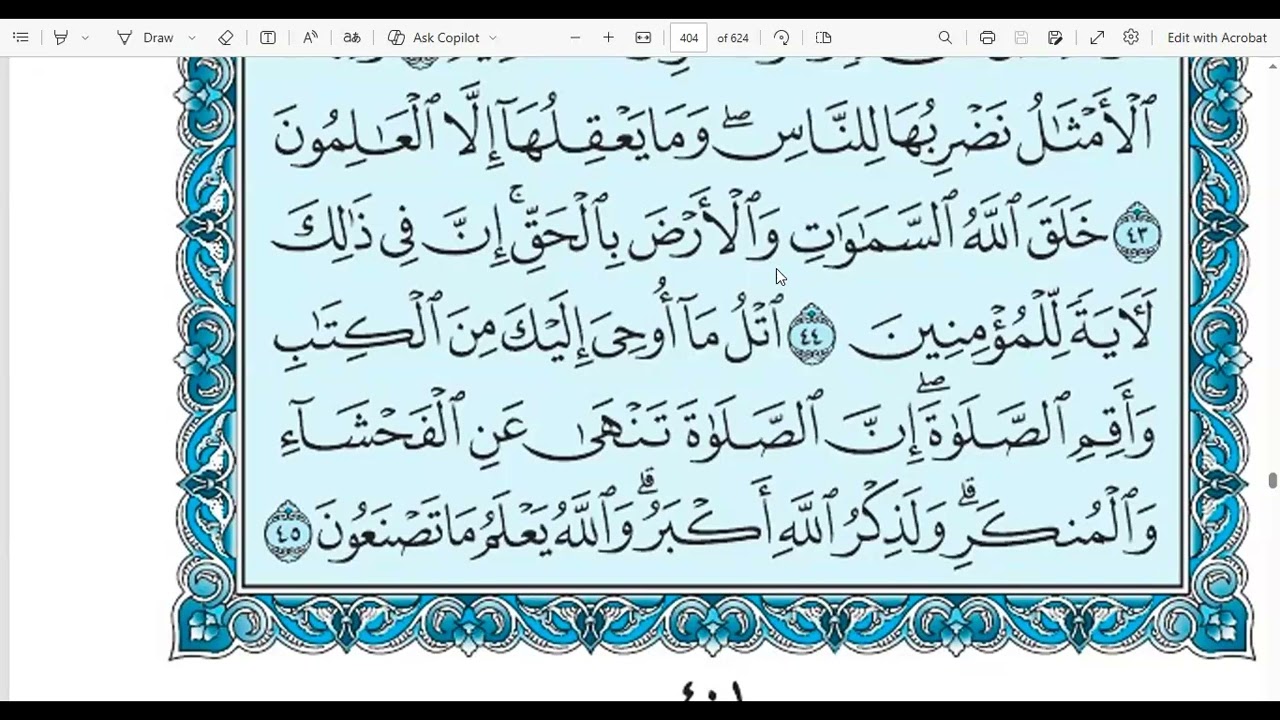 Draw Ask Copilot 404 of 624 Edit with Acrobat
ٱلْأَمْثَـٰلُ نَضْرِبُهَا لِلنَّاسِ ۖ وَمَا يَعْقِلُهَآ إِلَّا ٱلْعَـٰلِمُونَ
٤٣ خَلَقَ ٱللَّهُ ٱلسَّمَـٰوَٰتِ وَٱلْأَرْضَ بِٱلْحَقِّ ۚ إِنَّ فِى ذَٰلِكَ
لَـَٔايَةً لِّلْمُؤْمِنِينَ ٤٤ ٱتْلُ مَآ أُوحِىَ إِلَيْكَ مِنَ ٱلْكِتَـٰبِ
وَأَقِمِ ٱلصَّلَوٰةَ ۖ إِنَّ ٱلصَّلَوٰةَ تَنْهَىٰ عَنِ ٱلْفَحْشَآءِ
وَٱلْمُنكَرِ ۗ وَلَذِكْرُ ٱللَّهِ أَكْبَرُ ۗ وَٱللَّهُ يَعْلَمُ مَا تَصْنَعُونَ ٤٥
٤٠١